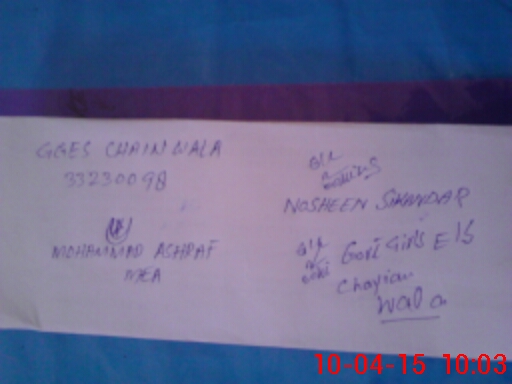 GGES CHAINWALA
33230098
MOHAMMAD ASHRAF
MEA
NOSHEEN SIKANDAR
Govt Girls E/S
Chayian
wala
10-04-15 10:03